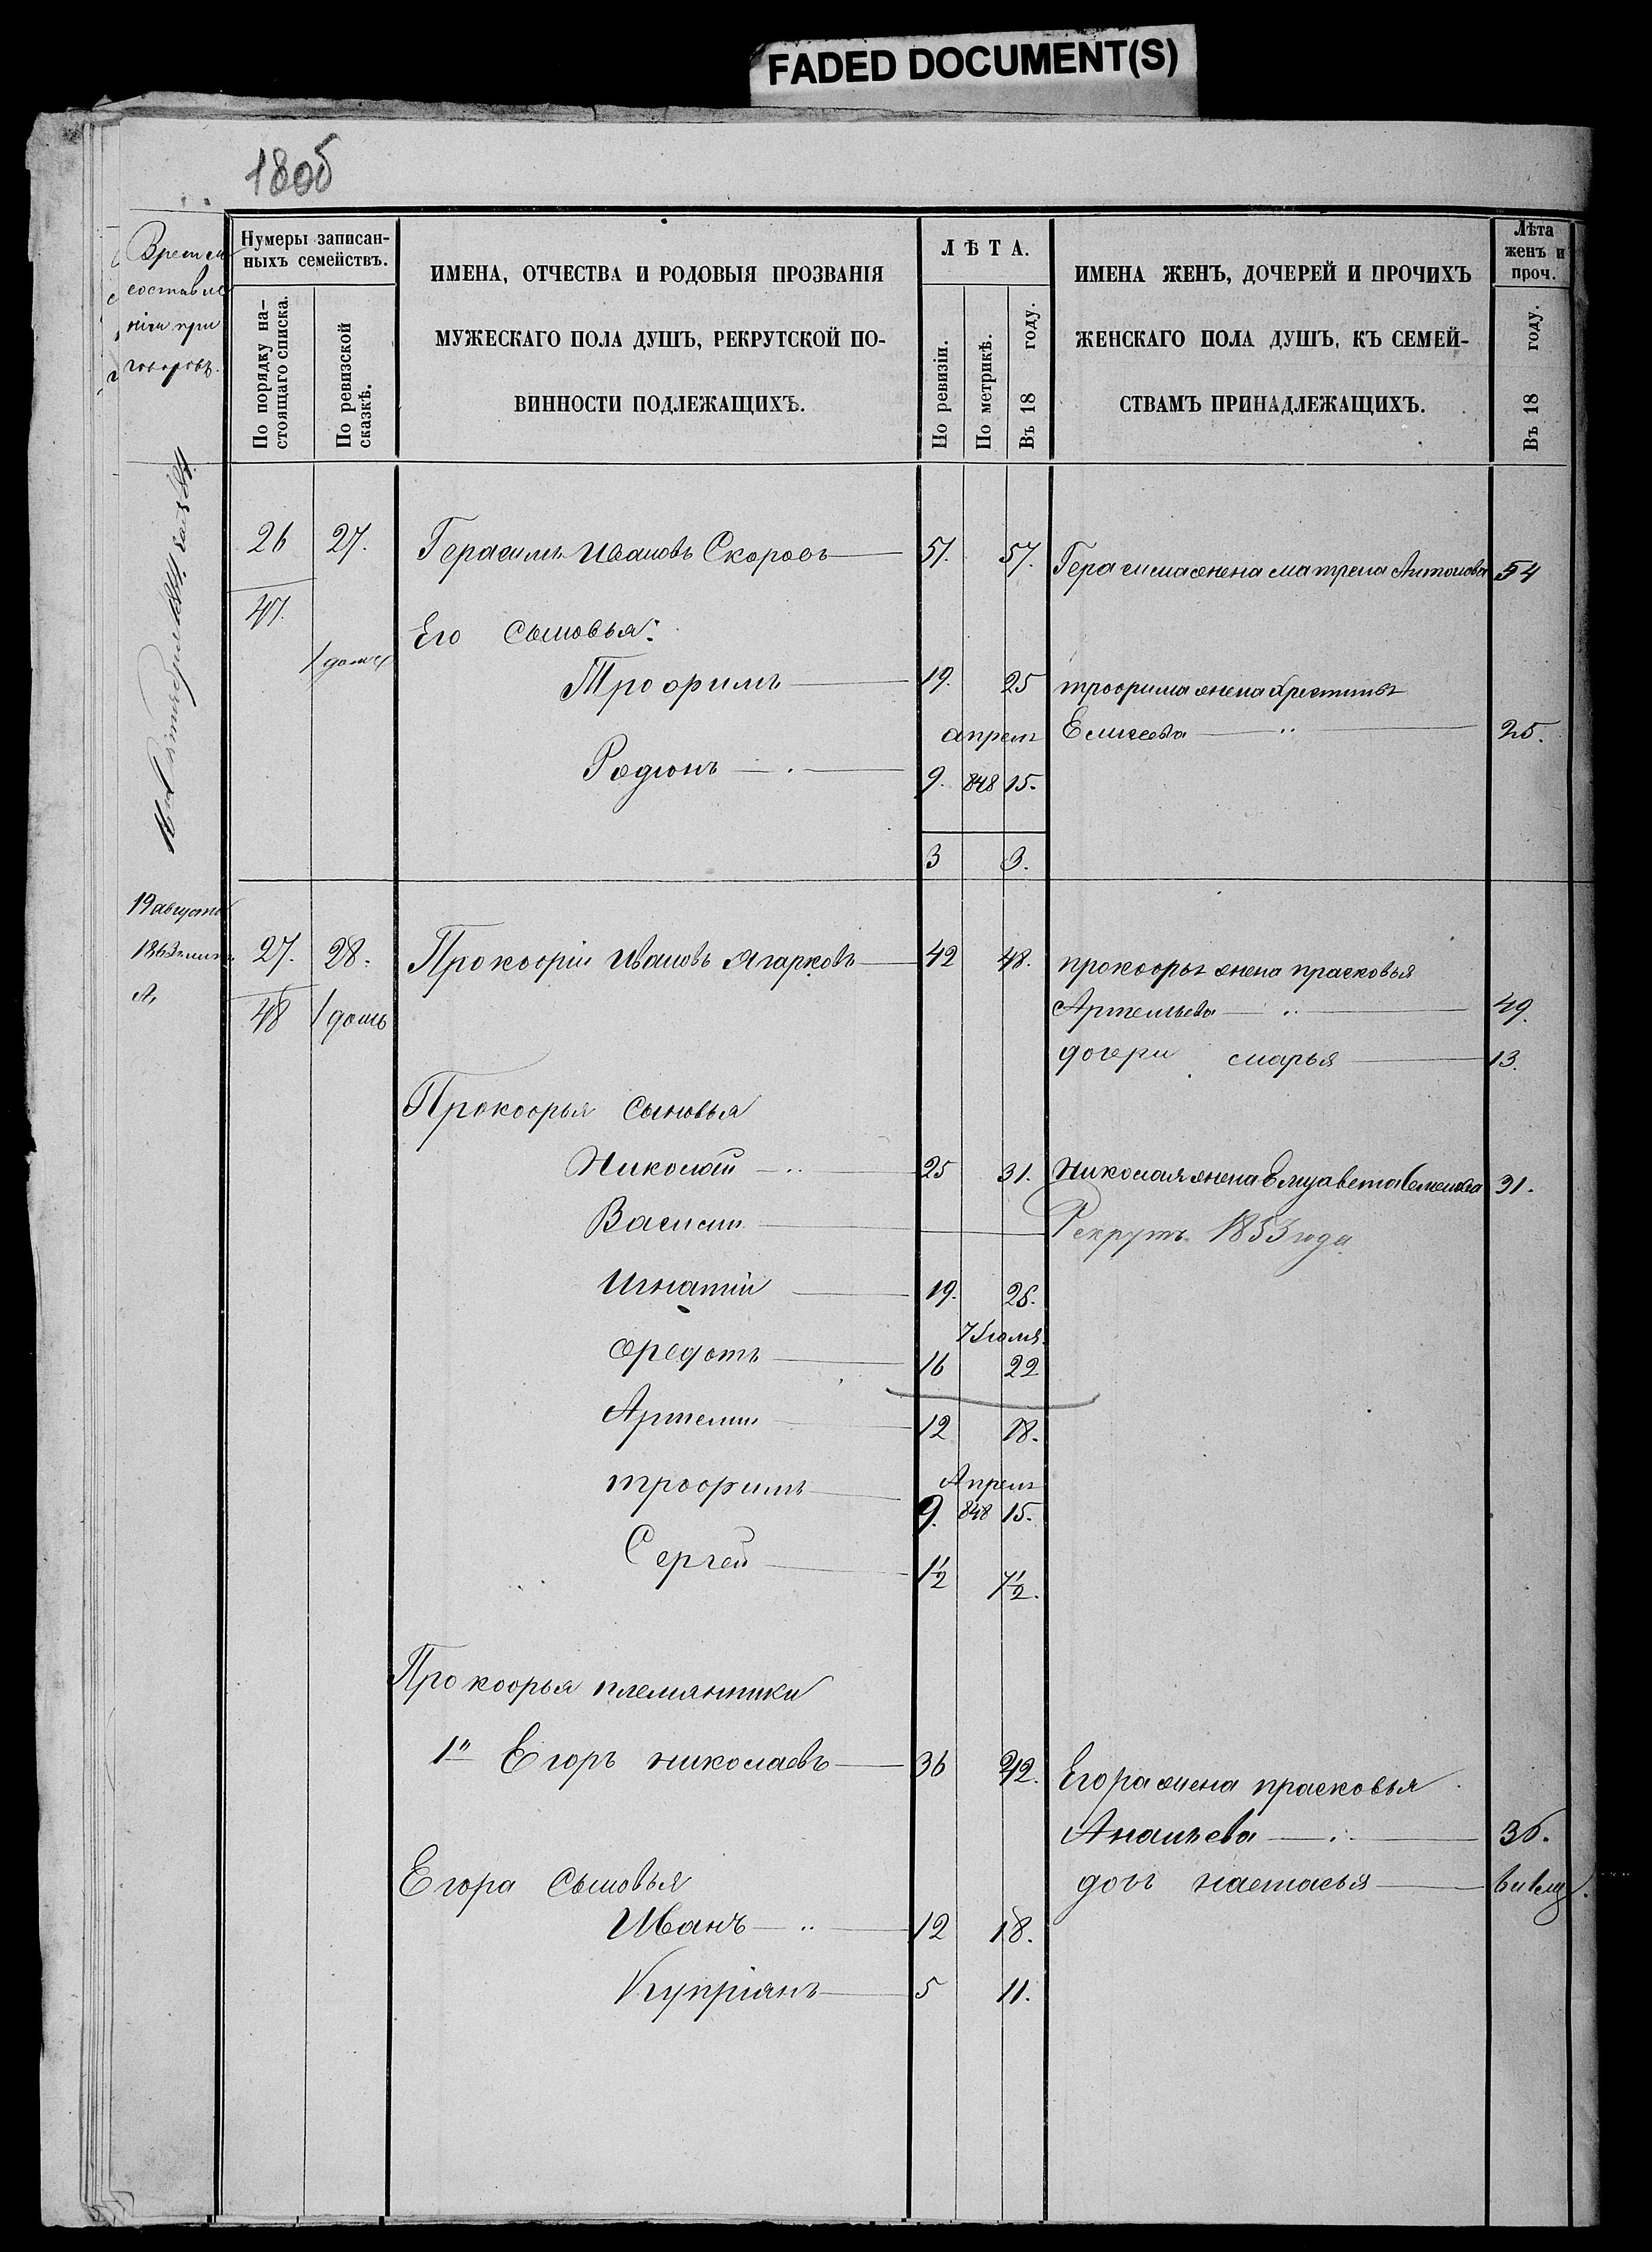 FADED DOCUMENT(S)
180б
Нумеры записан-
ныхъ семействъ.
По порядку на-
стоящаго списка.
По ревизской
сказкѣ.
ИМЕНА, ОТЧЕСТВА И РОДОВЫЯ ПРОЗВАНІЯ
МУЖЕСКАГО ПОЛА ДУШЪ, РЕКРУТСКОЙ ПО-
ВИННОСТИ ПОДЛЕЖАЩИХЪ.
ЛѢТА.
По ревизіи.
По метрикѣ.
Въ 18 году.
ИМЕНА ЖЕНЪ, ДОЧЕРЕЙ И ПРОЧИХЪ
ЖЕНСКАГО ПОЛА ДУШЪ, КЪ СЕМЕЙ-
СТВАМЪ ПРИНАДЛЕЖАЩИХЪ.
Лѣта
женъ и
проч.
Въ 18 году.
Время
составле
нія при
говоровъ.
26 27. Герасимъ Ивановъ Скоровъ 51. 57. Герасима жена Матрена Антонова 54
47.
Его Сыновья:
1 домъ
Трофимъ 19. 25 трофима жена Хрестинья
апреля Елисеева 25.
Родіонъ 9. 848 15.
3 3.
19 августа
1863 27. 28. Прокофій Ивановъ Ягарковъ 42 48. прокофья жена прасковья
48 1 домъ Артемьева 49.
дочери марья 13.
Прокофья Сыновья
Николай 25 31. Николая жена Елизавета Семенова 31.
Василій Рекрутъ 1853 года
Игнатій 19. 25.
7 Іюля
Федотъ 16 22
Артемій 12 18.
трофимъ Апреля
9. 848 15.
Сергей 1½ 7½.
Прокофья племянники
1й Егоръ николаевъ 36 42. Егора жена прасковья
Ананьева 36.
Егора Сыновья дочь настасья
Иванъ 12 18.
Купріянъ 5 11.